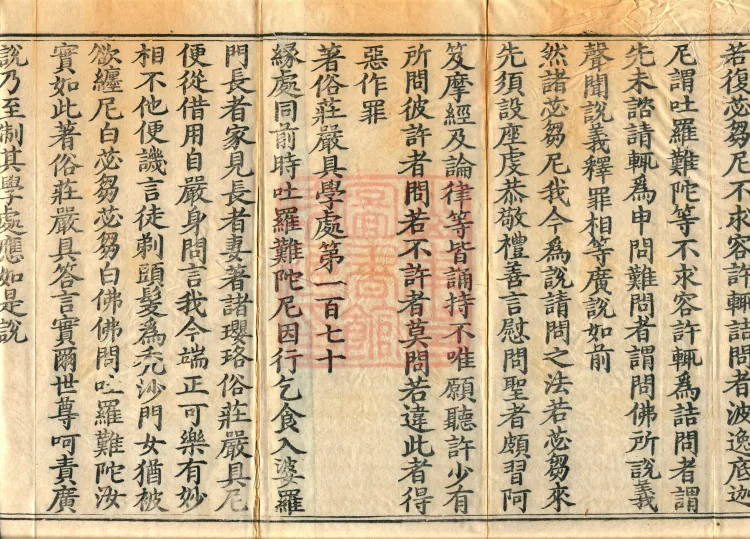 若復苾芻尼不求容許輒詰問者波逸底迦
尼謂吐羅難陀等不求容許輒為詰問者謂
先未諮請輒為申問難問者謂問佛所說義
聲聞說義釋罪相等廣說如前
然諸苾芻尼我今為說請問之法若苾芻來
先須設座虔恭敬禮善言慰問聖者頗習阿
笈摩經及論律等皆誦持不唯願聽許少有
所問彼許者問若不許者莫問若違此者得
惡作罪
著俗莊嚴具學處第一百七十
緣處同前時吐羅難陀尼因行乞食入婆羅
門長者家見長者妻著諸瓔珞俗莊嚴具尼
便從借用自嚴身問言我今端正可樂有妙
相不他便譏言徒剃頭髮為禿沙門女猶被
欲纏尼白苾芻苾芻白佛佛問吐羅難陀汝
實如此著俗莊嚴具答言實爾世尊呵責廣
說乃至制其學處應如是說